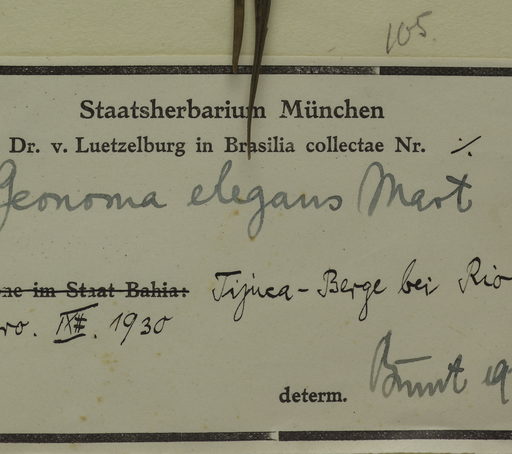 105.
Staatsherbarium München
Dr. v. Luetzelburg in Brasilia collectae Nr. ./.
Geonoma elegans Mart
im Staat Bahia: Tijuca-Berge bei Rio
ro. 1930
determ. Burret 19